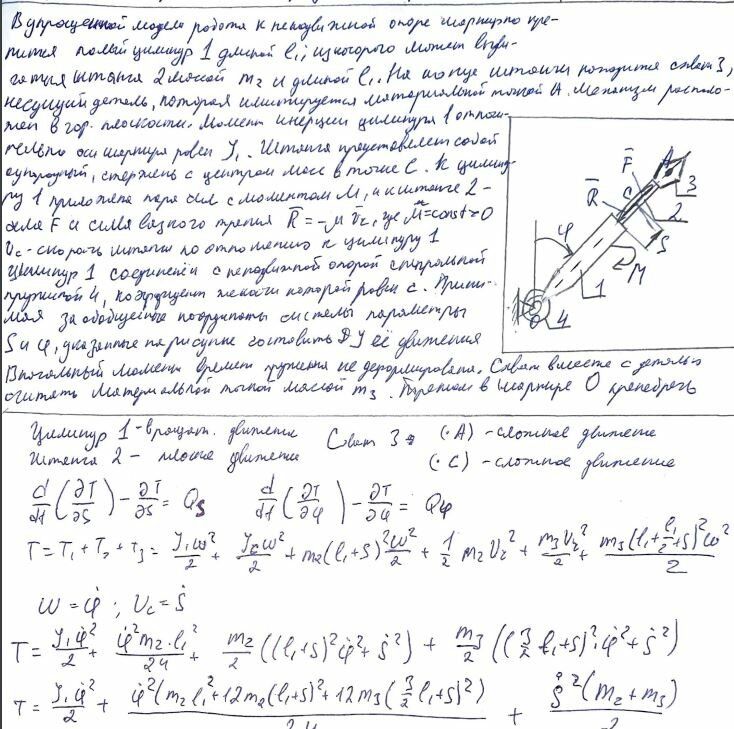 В упрощенной модели робота к неподвижной опоре шарнирно кре-
пится полый цилиндр 1 длиной l₁, из которого может выдви-
гаться штанга 2 массой m₂ и длиной l₁. На конце штанги находится схват 3,
несущий деталь, которая имитируется материальной точкой A. Механизм располо-
жен в гор. плоскости. Момент инерции цилиндра 1 относи-
тельно оси шарнира равен J₁. Штанга представляет собой
однородный, стержень с центром масс в точке C. К цилинд-
ру 1 приложена пара сил с моментом M, а к штанге 2 -
сила F и сила вязкого трения R̅ = -μ v̅r, где μ = const > 0
Vc - скорость штанги по отношению к цилиндру 1
Цилиндр 1 соединён с неподвижной опорой спиральной
пружиной 4, коэффициент жёсткости которой равен c. Прини-
мая за обобщённые координаты системы параметры
S и φ, указанные на рисунке составить ДУ её движения
В начальный момент времени пружина не деформирована. Схват вместе с деталью
считать материальной точкой массой m₃. Трением в шарнире O пренебречь
φ R̅ F̅ C A 3 2 S M 1 O 4
Цилиндр 1 - вращат. движение Схват 3 (·A) - сложное движение
Штанга 2 - плоское движение (·C) - сложное движение
d/dt (∂T/∂Ṡ) - ∂T/∂S = Qs d/dt (∂T/∂φ̇) - ∂T/∂φ = Qφ
T = T₁ + T₂ + T₃ = J₁ω²/2 + Jcω²/2 + m₂(l₁+S)²ω²/2 + 1/2 m₂Vr² + m₃Vr²/2 + m₃(l₁+l₁/2+S)²ω²/2
ω = φ̇ ; Vc = Ṡ
T = J₁φ̇²/2 + φ̇²m₂·l₁²/24 + m₂/2 ((l₁+S)²φ̇² + Ṡ²) + m₃/2 ((3/2 l₁+S)²·φ̇² + Ṡ²)
T = J₁φ̇²/2 + φ̇²(m₂l₁² + 12m₂(l₁+S)² + 12m₃(3/2 l₁+S)²)/24 + Ṡ²(m₂+m₃)/2